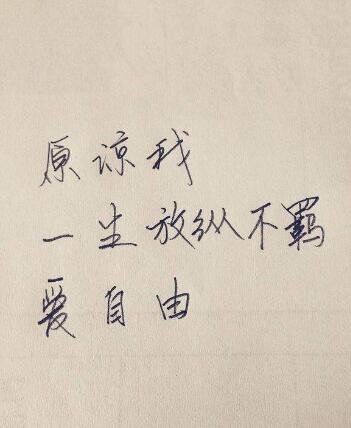 原谅我
一生放纵不羁
爱自由